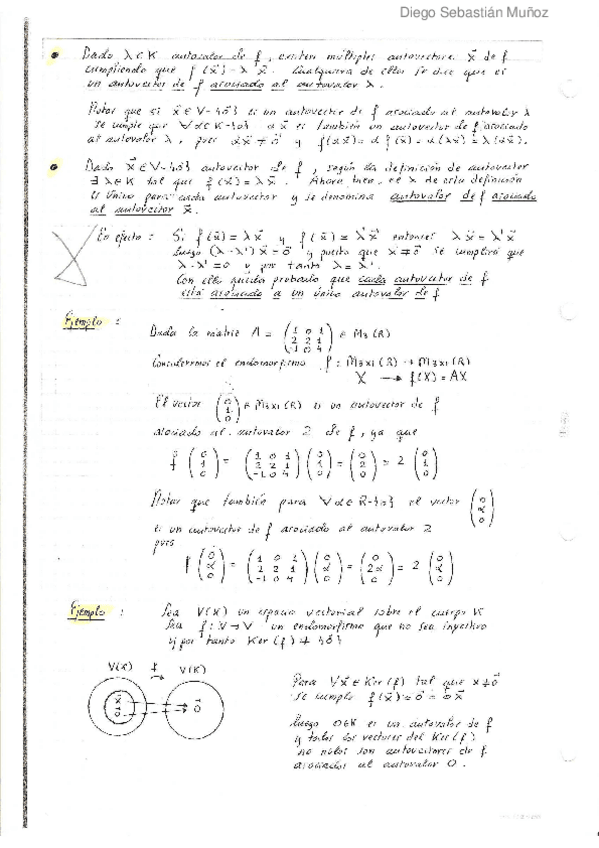 Diego Sebastián Muñoz
• Dado λ ∈ K autovalor de f, existen múltiples autovectores x⃗ de f
cumpliendo que f(x⃗) = λ x⃗. Cualquiera de ellos se dice que es
un autovector de f asociado al autovalor λ.
Notar que si x⃗ ∈ V-{0⃗} es un autovector de f asociado al autovalor λ
se cumple que ∀α ∈ K-{0} αx⃗ es también un autovector de f asociado
al autovalor λ, pues αx⃗ ≠ 0⃗ y f(αx⃗) = α f(x⃗) = α(λx⃗) = λ(αx⃗).
• Dado x⃗ ∈ V-{0⃗} autovector de f, según la definición de autovector
∃ λ ∈ K tal que f(x⃗) = λx⃗. Ahora bien, el λ de esta definición
es único para cada autovector y se denomina autovalor de f asociado
al autovector x⃗.
En efecto: Si f(x⃗) = λx⃗ y f(x⃗) = λ'x⃗ entonces λx⃗ = λ'x⃗
luego (λ-λ')x⃗ = 0⃗ y puesto que x⃗ ≠ 0⃗ se cumplirá que
λ-λ' = 0 y por tanto λ = λ'.
Con ello queda probado que cada autovector de f
está asociado a un único autovalor de f
Ejemplo:
Dada la matriz A = (1 0 1 / 2 2 1 / -1 0 4) ∈ M3(R)
Consideremos el endomorfismo f: M3x1(R) → M3x1(R)
X → f(X) = AX
El vector (0 / 1 / 0) ∈ M3x1(R) es un autovector de f
asociado al autovalor 2 de f, ya que
f (0 / 1 / 0) = (1 0 1 / 2 2 1 / -1 0 4) (0 / 1 / 0) = (0 / 2 / 0) = 2 (0 / 1 / 0)
Notar que también para ∀α ∈ R-{0} el vector (0 / α / 0)
es un autovector de f asociado al autovalor 2
pues
f (0 / α / 0) = (1 0 1 / 2 2 1 / -1 0 4) (0 / α / 0) = (0 / 2α / 0) = 2 (0 / α / 0)
Ejemplo: Sea V(K) un espacio vectorial sobre el cuerpo K
Sea f: V → V un endomorfismo que no sea inyectivo
y por tanto Ker(f) ≠ {0⃗}
V(K) f V(K)
x⃗
0⃗ 0⃗
Para ∀x⃗ ∈ Ker(f) tal que x⃗ ≠ 0⃗
se cumple f(x⃗) = 0⃗ = 0x⃗
luego 0 ∈ K es un autovalor de f
y todos los vectores del Ker(f)
no nulos son autovectores de f
asociados al autovalor 0.